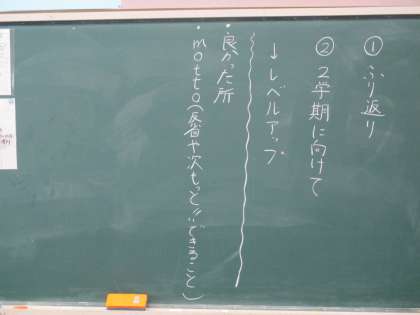 ① ふり返り
② 2学期に向けて
↓レベルアップ
・良かった所
・motto(反省や次もっと!!できること)